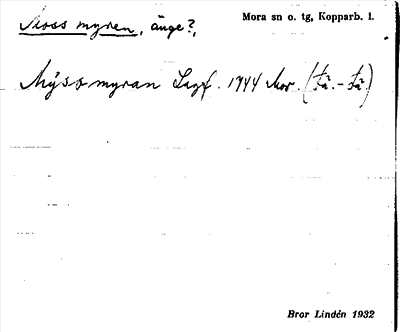 Moss myren, änge?, Mora sn o. tg, Kopparb. l.
Mÿss myran Lagf. 1944 Mor. (fä.-fä.)
Bror Lindén 1932